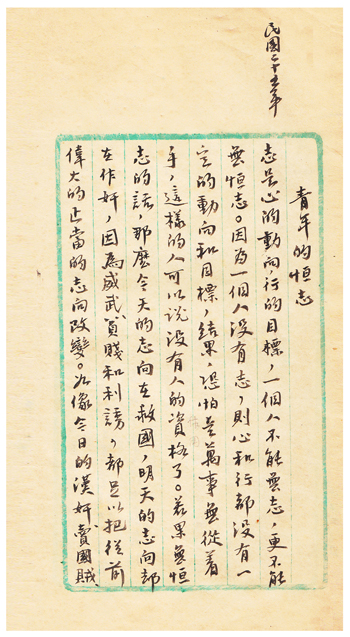 民國二十五年
青年的恒志
志是心的動向，行的目標，一個人不能無志，更不能
無恒志。因為一個人沒有志，則心和行都沒有一
定的動向和目標，結果，恐怕是萬事無從着
手，這樣的人可以說沒有人的資格了。若果無恒
志的話，那麼今天的志向在救國，明天的志向却
在作奸，因為威武、貧賤和利誘，都足以把從前
偉大的正當的志向改變。好像今日的漢奸賣國賊